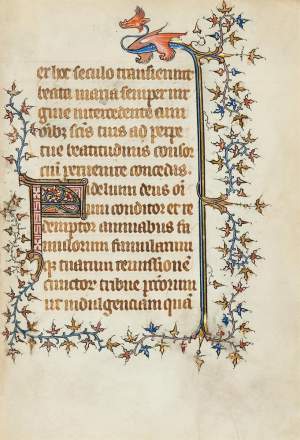 ex hoc seculo transierunt
beata maria semper uir
gine intercedente cum
oībꝫ scīs tuis ad perpe
tue beatitudinis consor
ciū peruenire concedas.
Fidelium deus oī
um conditor et re
demptor animabus fa
mulorum famularum
qꝫ tuarum remissionē
cunctor tribue pccōrum
ut indulgenciam quā